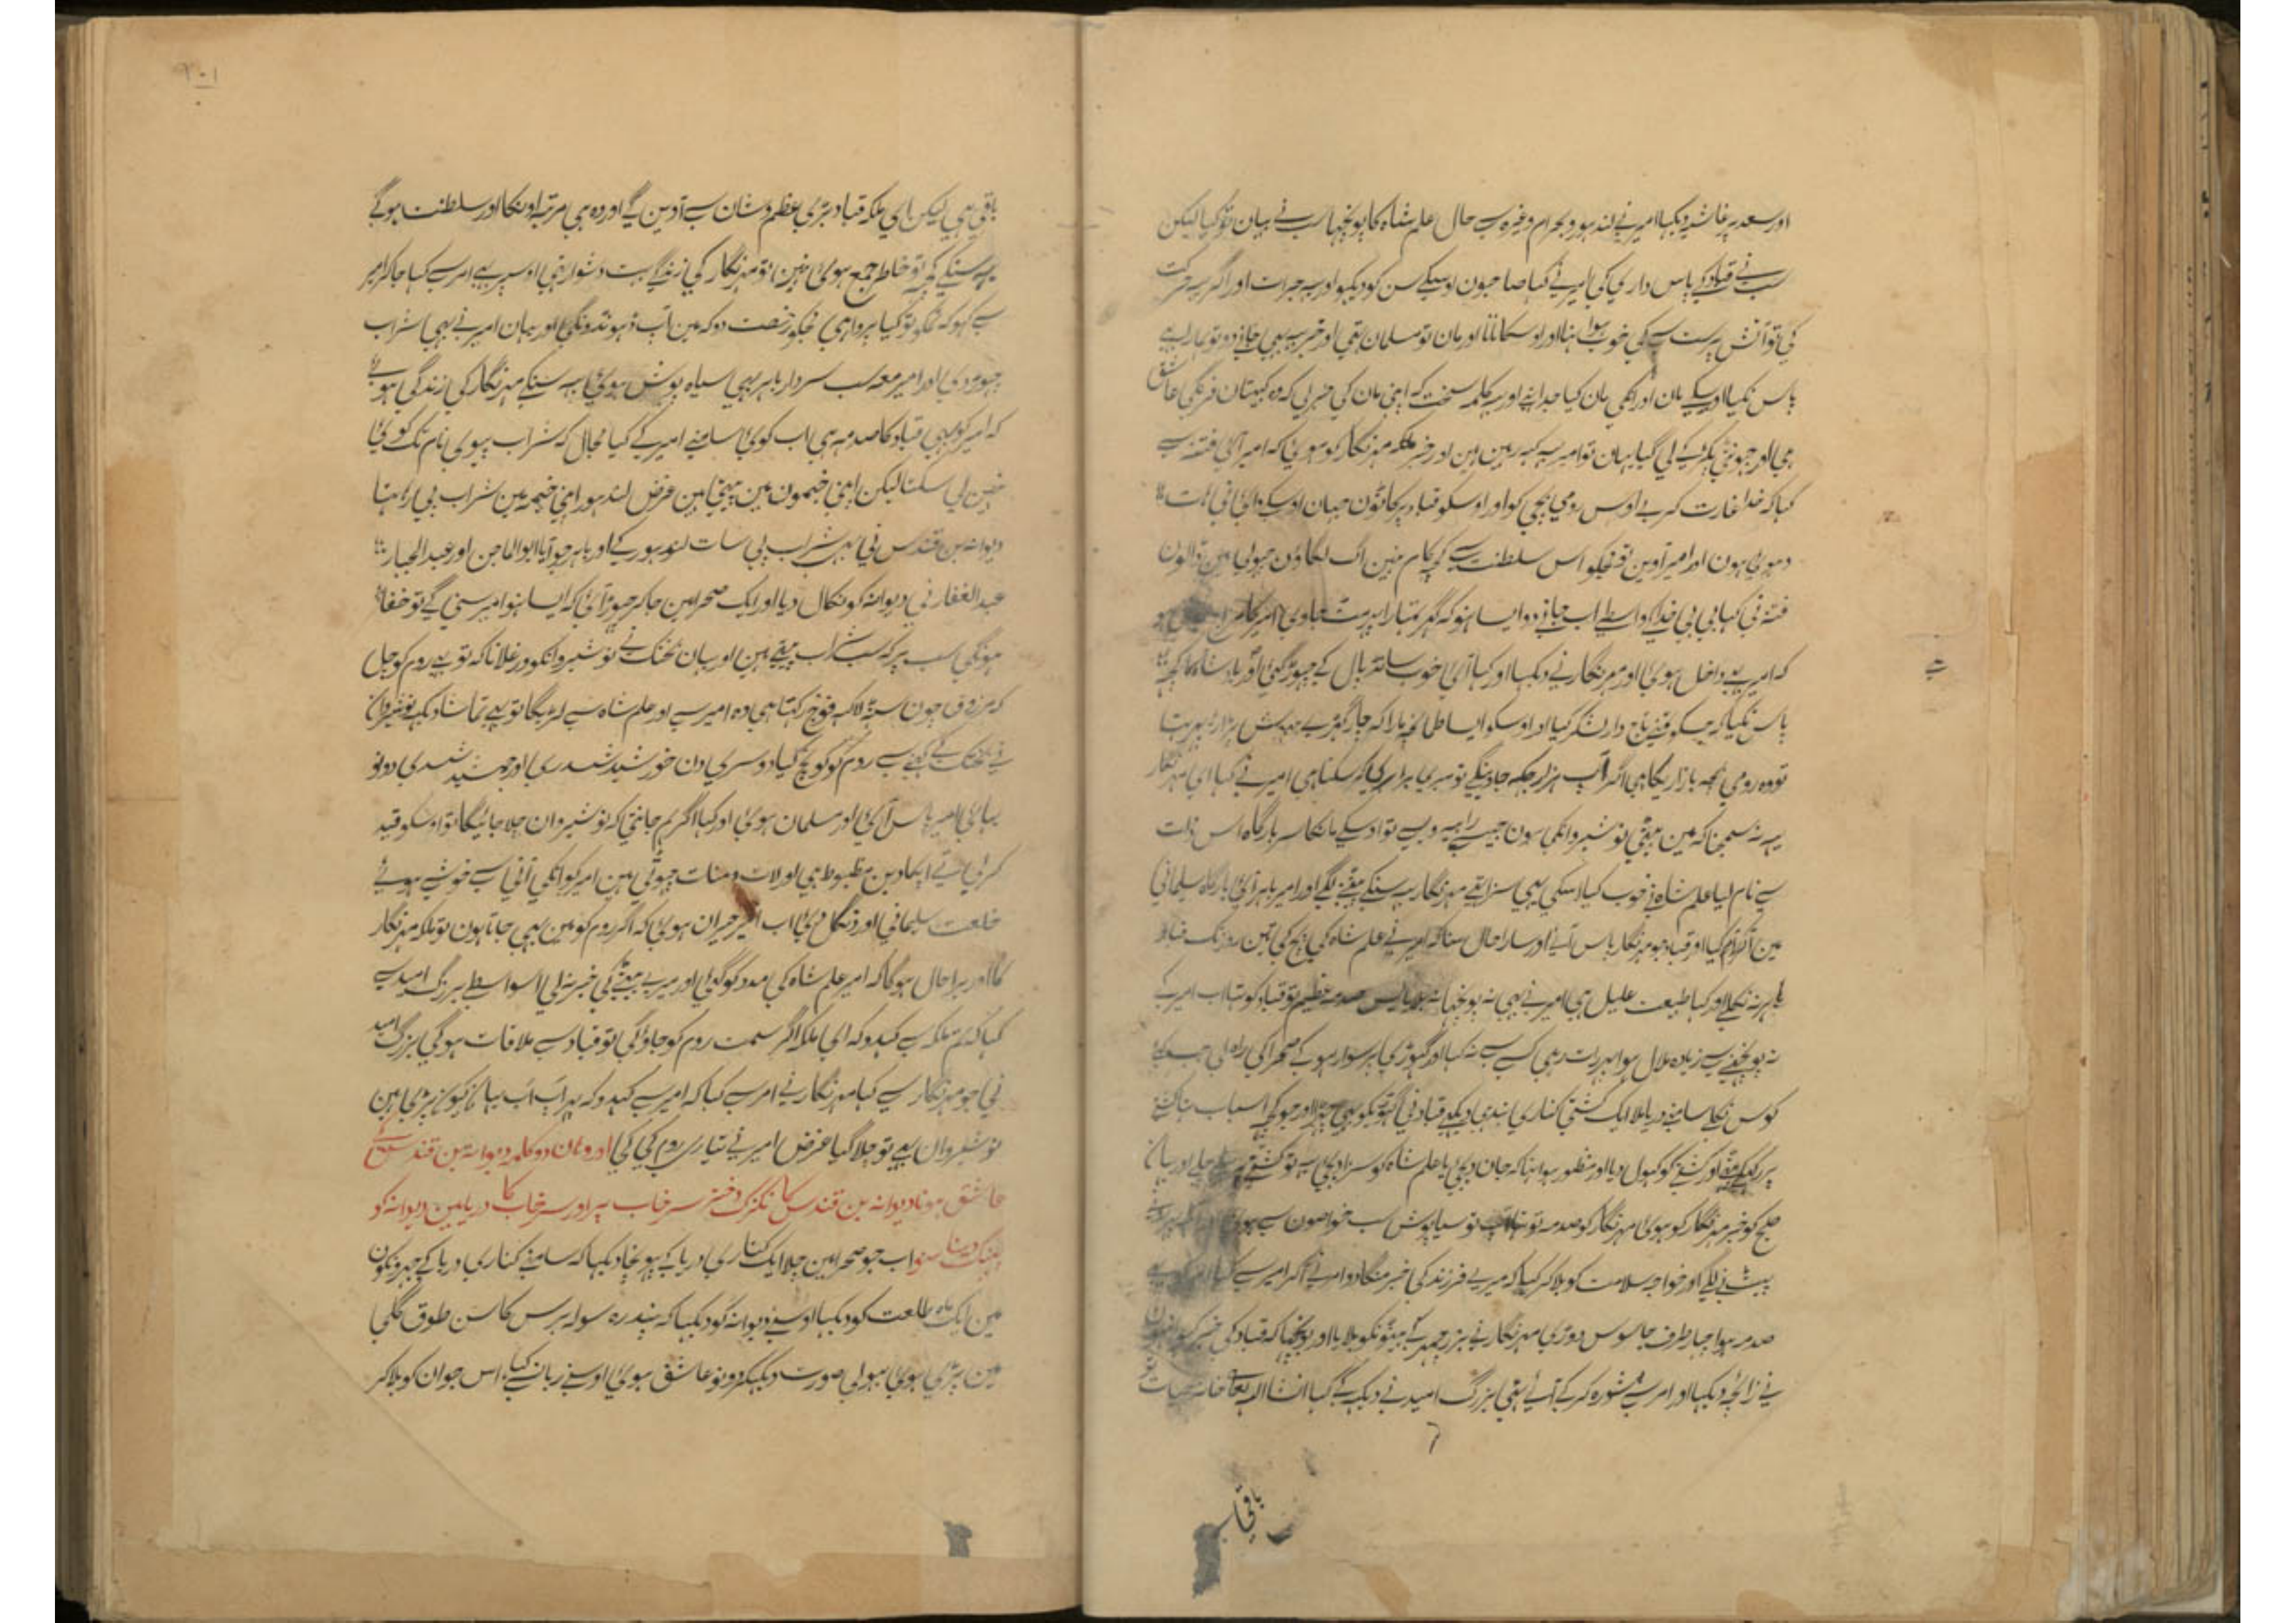 اور سعد پر غاشیہ دیکہا امیر نے لندہور و بہرام وغیرہ سے حال علم شاہ کا پونچہا سب نے بیان تو کیا لیکن
سب نے قباد کے پاس داری کی امیر نے کہا صاحبون اوسکے سن کو دیکہو اور یہ جرات اور اگر یہ حرکت
کی تو آتش پرست سے کی خوب ہوا اور اوسکا نانا اور مان تو مسلمان تہی اور خیر یہ بہی جانے دو تو ہمارے
پاس نکیا اوسکے مان اور انکی مان کیا جدا ہے اور یہ کلمہ سخت کہ اپنی مان کی خبر لی کہ وہ کپتان فرنگی عاشق
ہی اور چونٹی پکڑ کے لی گیا یہان تو امیر یہ کہہ رہین ہین اور خبر ملکہ مہرنگار کو ہوئی کہ امیر آئی فتنہ سے
کہا کہ خدا غارت کرے اوس رومی بچی کو اور اوسکو قباد پر کاٹون جہان اوسکے
ہوئی ہون اور امیر آوین تو مجکو اس سلطنت سے کچہ کام نہین آگ لگاؤن چولی مین ڈالون
فتنہ نی کہا بی بی خدا کے واسطے اب جانے دو ایسا نہو کہ گہر تمہارا
کہ امیر بہی داخل ہوئی اور مہرنگار نے دیکہا اور کہا آئی خوب سانڈ پال کے چہوڑ گئی اور بادشاہ کا کچہ
پاس نکیا کہ جسکو نے تاج دار لشکر کیا اور اوسکو ایسا طمانچہ مارا کہ چار گہڑے بیہوش پڑا رہتا
تو وہ رومی بچہ بازاریکا ہی اگر آپ ہزار جگہ جاوینگے تو میری برابر کیا کر سکتا ہی امیر نے کہا ای مہرنگار
یہ نہ سمجہنا کہ مین بیٹی نوشیروانکی ہون جیسے رابعہ ویسے تو اوسکے مانکا سر بارگاہ اس ذات
سے نام لیا علم شاہ نے خوب کیا اسکی یہی سزا تہے مہرنگار یہ سنکے پیٹنے لگے اور امیر باہر آئی بارگاہ سلیمانی
مین آکر آرام کیا اور قباد جو مہرنگار پاس آئے اور سارا حال سنا کہ امیر نے علم شاہ کی پچ کی تین روز تک قباد
باہر نہ نکلے اور کہا طبیعت علیل ہی امیر نے بہی نہ پونچہا نہ بلایا اس صدمہ عظیم تو قباد کو تہا اب امیر کے
نہ پونچہنے سے زیادہ ملال ہوا پہر رات رہی کسے سے نہ کہا اور گہوڑی پر سوار ہو کے صحرا کی راہ لی جب
کوس نکلے سامنے دریا ملا ایک کشتی کناری بندہی دیکہے قباد نی گہوڑیکو بہی چہوڑا اور جو کچہ اسباب تہا کشتی
پر رکہکے بیٹہے اور کشتے کو کہول دیا اور منظور ہوا تہا کہ جان دیجئی یا علم شاہ کو سزا دیجئی یہ تو کشتے پر بیٹہے چلے اور یہان
صبح کو خبر مہرنگار کو ہوئی مہرنگار کو صدمہ تو تہا اب تو سیاہ پوش سب خواصون سے ہوئی
پیٹنے لگے اور خواجہ سلامت کو بلا کر کہا کہ میرے فرزند کی خبر منگا دو امر نے آکر امیر سے کہا امیر کو بہی
صدمہ ہوا چہار طرف جاسوس دوڑی مہرنگار نے بزرجمہر کے بیٹونکو بلایا اور پونچہا کہ قباد کی خبر کہو انہون
نے زائچہ دیکہا اور امر سے مشورہ کر کے آئے تہی بزرگ امید نے دیکہہ کے کہا انشا اللہ تعالی خانہ حیات
باقی
۲۰۱
باقی ہی لیکن ای ملکہ قباد بڑی عظم و شان سے آوین گے اور وہ ہی مرتبہ اونکا اور سلطنت ہوگے
یہ سنکے کچہ تو خاطر جمع ہوئی نہین تو مہرنگار کی زندگے بہت دشوار تہی اوسپر بہی امر سے کہا جا کر امیر
سے کہو کہ تمکو تو کیا پرواہی مجکو رخصت دو کہ مین آپ ڈہونڈونگی اور یہان امیر نے بہی شراب
چہوڑ دی اور امیر معہ سب سردار باہر بہی سیاہ پوش ہوئی یہ سنکے مہرنگار کی زندگی ہوئی
کہ امیر کو بہی قباد کا صدمہ ہی اب کوئی سامنے امیر کے کیا مجال کہ شراب پیوی نام تک کوئی
نہین لی سکتا لیکن اپنی خیمون مین پیتی ہین غرض لندہور اپنی خیمہ مین شراب پی رہا تہا
دیوانہ بن قندس نی بہی شراب پی سات لندہور کے اور باہر جو آیا ابوالماجن اور عبدالجبار
عبدالغفار نی دیوانہ کو نکال دیا اور ایک صحرا مین جا کر چہوڑ آئی کہ ایسا نہو امیر سنی گے تو خفا
ہونگی سب پر کہ سب شراب پیتے ہین اور یہان بختک نے نوشیروانکو ورغلانا کہ تو بہی روم کو چل
کہ مرزوق جون ستر لاکہہ فوج رکہتا ہی وہ امیر سے اور علم شاہ سے لڑیگا تو بہی تماشا دیکہے نوشیروان
نے بختک کے کہنے سے روم کو کوچ کیا دوسری دن خورشید شدری اور جمشید شدری دونو
بہائی امیر پاس آئی اور مسلمان ہوئی اور کہا اگر ہم جانتی کہ نوشیروان چلا جائیگا تو اوسکو قید
کر لیتے آپکا دین مظبوط ہی اور لات و منات جہوٹی ہین امیر کو انکی آنی سے خوشے ہوئے
خلعت سلیمانی اور دنگل دی اب امیر حیران ہوئی کہ اگر روم کو مین بہی جاتا ہون تو ملکہ مہرنگار
کا اور برا حال ہوگا کہ امیر علم شاہ کی مدد کو گئی اور میرے بیٹے کی خبر نہ لی اسواسطے بزرگ امید سے
کہا کہ تم ملکہ سے کہدو کہ ای ملکہ اگر سمت روم کو جاوگی تو قباد سے ملاقات ہوگی بزرگ امید
نی جو مہرنگار سے کہا مہرنگار نے امر سے کہا کہ امیر سے کہدو کہ پہر اب آپ یہان کیون پڑی ہین
نوشیروان بہی تو چلا گیا غرض امیر نے تیاری روم کی کی اور وہان دو کلمہ دیوانہ بن قندس کے
عاشق ہونا دیوانہ بن قندس کا دختر سرخاب پر اور سرخاب کا دریا مین دیوانہ کو
پہینک دینا سنو اب جو صحرا مین چلا ایک کناری دریا کے پہونچا دیکہا کہ سامنے کناری دریا کے جہروکون
مین ایک ماہ طلعت کو دیکہا اوسنے دیوانہ کو دیکہا کہ پندرہ سولہ برس کا سن طوق گلی
مین پڑی ہوئی بہولی صورت دیکہکر دونو عاشق ہوئی اوسنے زبان سے کہا اس جوان کو بلا کر